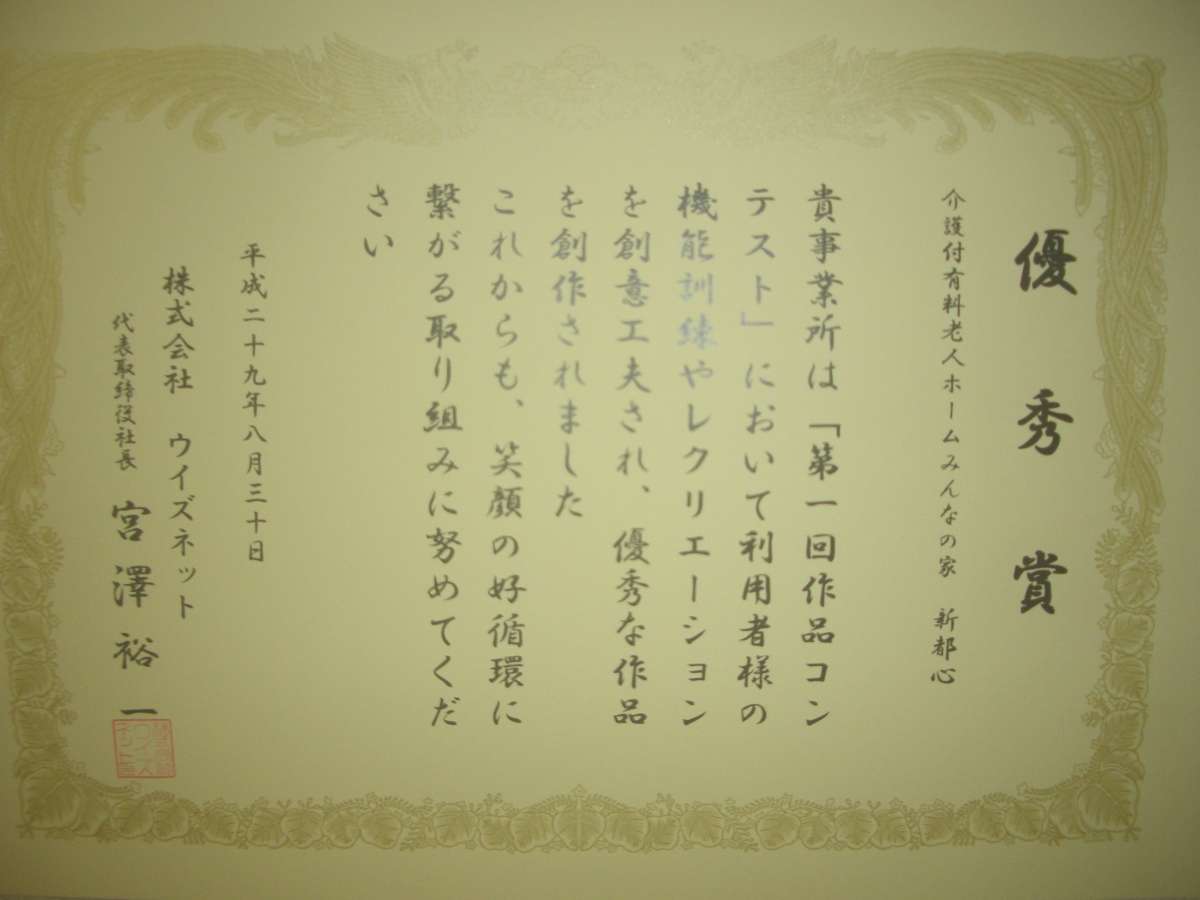 優秀賞
介護付有料老人ホームみんなの家 新都心
貴事業所は「第一回作品コン
テスト」において利用者様の
機能訓練やレクリエーション
を創意工夫され、優秀な作品
を創作されました
これからも、笑顔の好循環に
繋がる取り組みに努めてくだ
さい
平成二十九年八月三十日
株式会社 ウイズネット
代表取締役社長 宮澤裕一